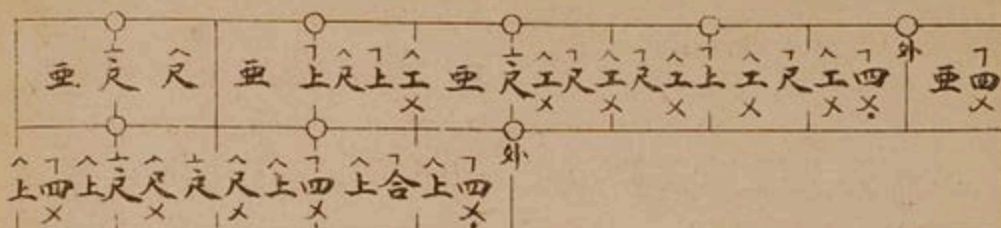 亜 尺 尺 亜 上 尺 上 工 亜 尺 工 尺 工 尺 工 上 工 尺 工 四 外 亜 四
上 四 上 尺 尺 尺 尺 上 四 上 合 上 四 外